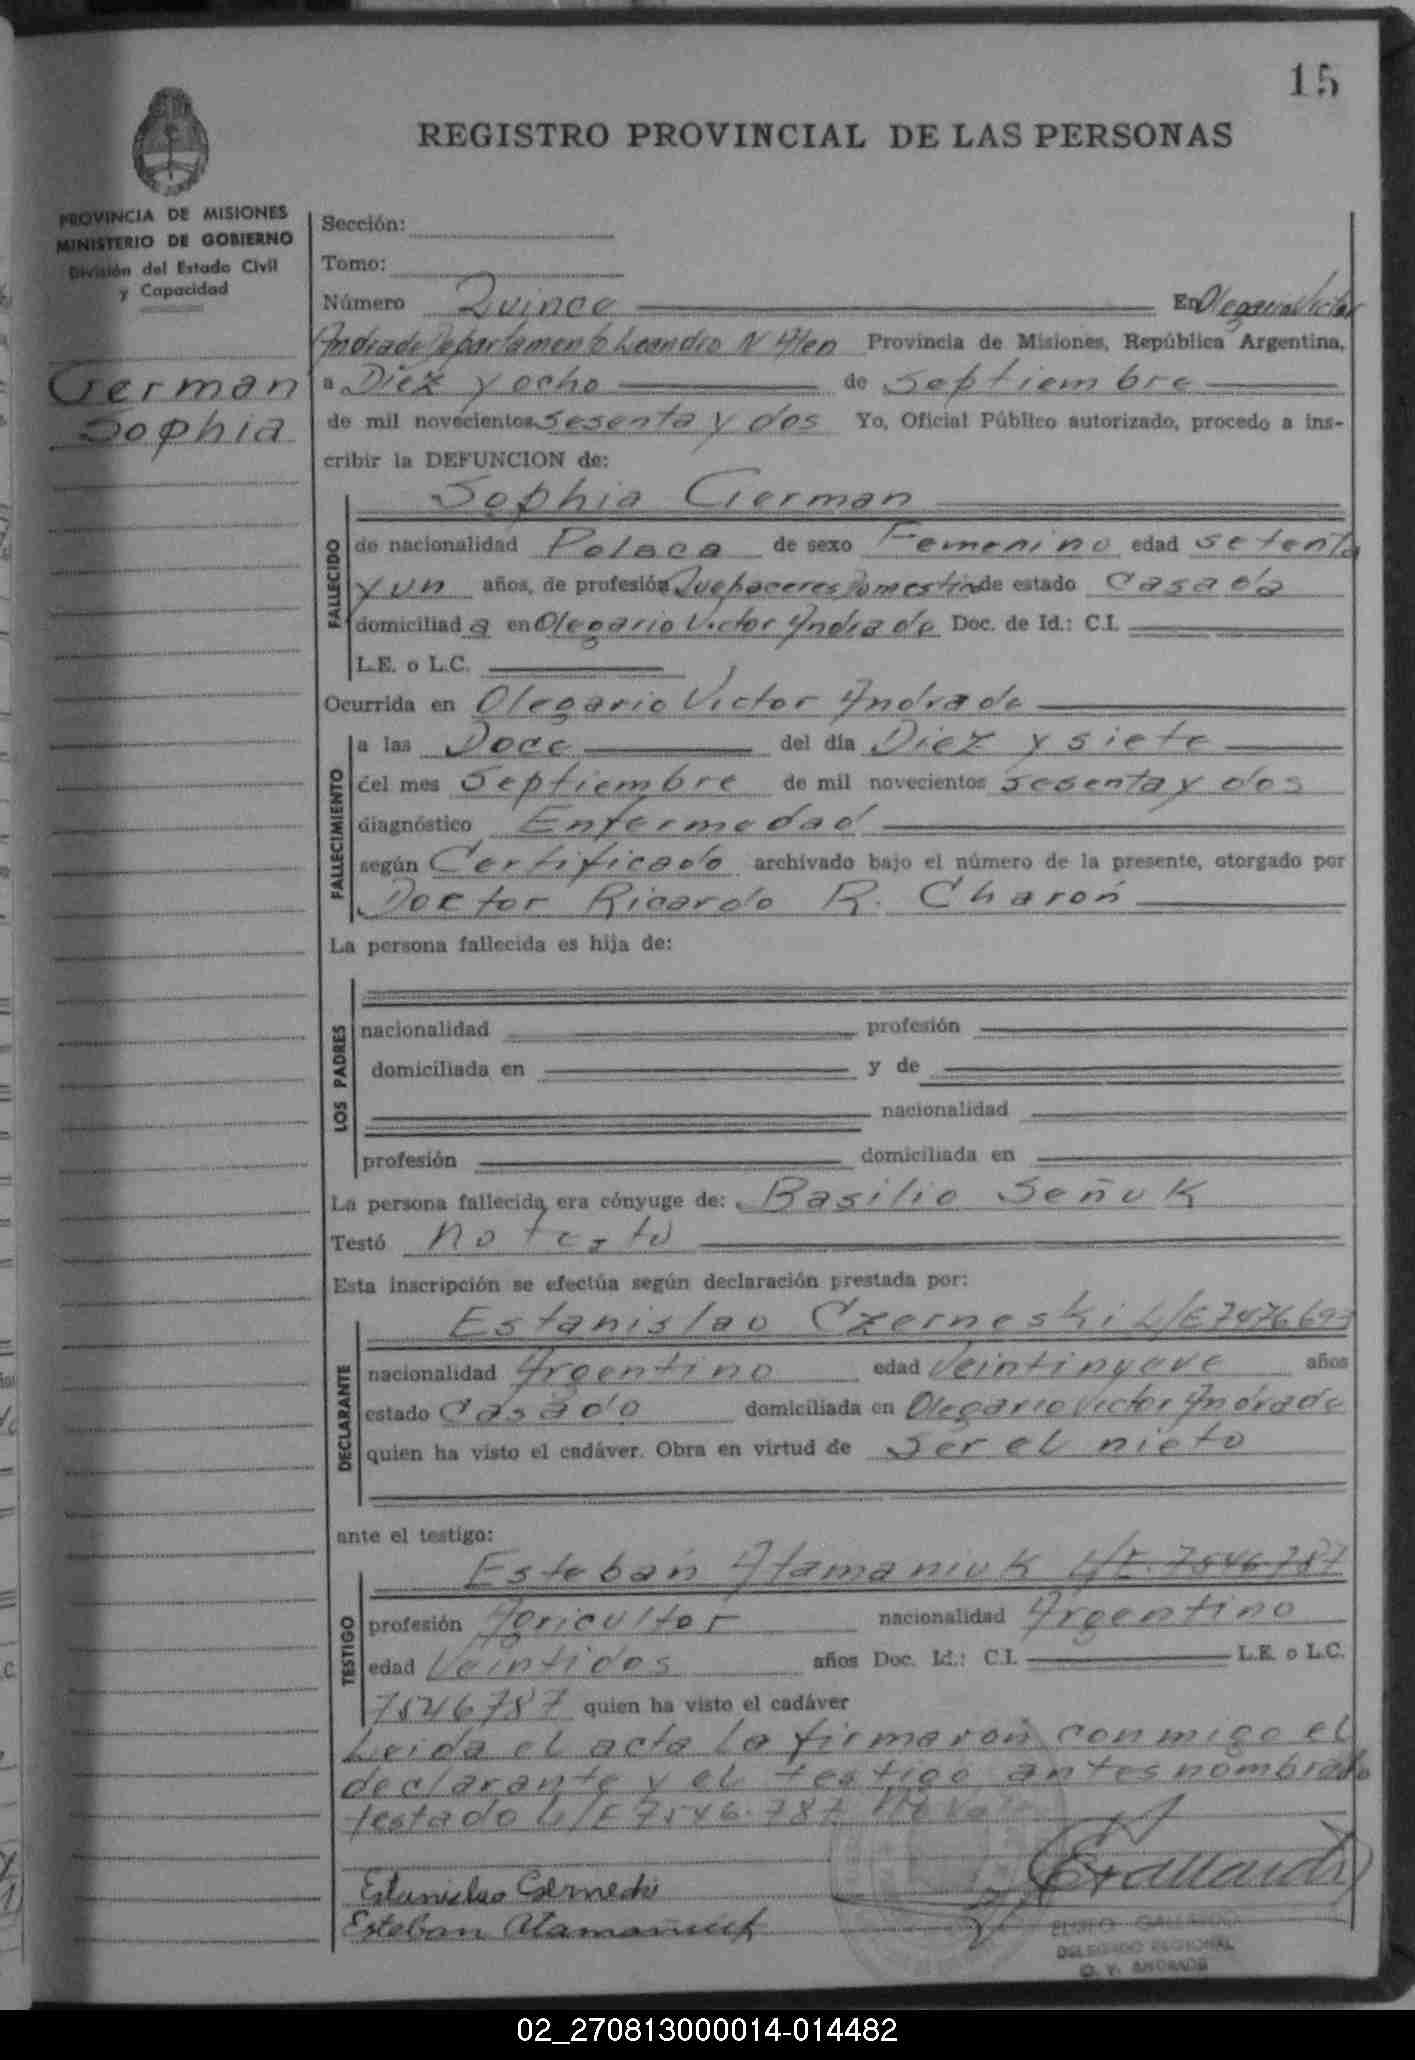 15
REGISTRO PROVINCIAL DE LAS PERSONAS
PROVINCIA DE MISIONES
MINISTERIO DE GOBIERNO
División del Estado Civil
y Capacidad
German
Sophia
Sección:
Tomo:
Número Quince En Olegario Victor
Andrade Departamento Leandro N Alen Provincia de Misiones, República Argentina,
a Diez y ocho de Septiembre
de mil novecientos sesenta y dos Yo, Oficial Público autorizado, procedo a ins-
cribir la DEFUNCION de:
Sophia German
FALLECIDO
de nacionalidad Polaca de sexo Femenino edad setenta
y un años, de profesión Quehaceres Domestico de estado Casada
domiciliada en Olegario Victor Andrade Doc. de Id.: C.I.
L.E. o L.C.
Ocurrida en Olegario Victor Andrade
FALLECIMIENTO
a las Doce del día Diez y siete
del mes Septiembre de mil novecientos sesenta y dos
diagnóstico Enfermedad
según Certificado archivado bajo el número de la presente, otorgado por
Doctor Ricardo R. Charon
La persona fallecida es hija de:
LOS PADRES
nacionalidad profesión
domiciliada en y de
nacionalidad
profesión domiciliada en
La persona fallecida era cónyuge de: Basilio Señuk
Testó no testo
Esta inscripción se efectúa según declaración prestada por:
Estanislao Czerneski L/E 7476693
DECLARANTE
nacionalidad Argentino edad Veintinueve años
estado Casado domiciliada en Olegario Victor Andrade
quien ha visto el cadáver. Obra en virtud de ser el nieto
ante el testigo:
Esteban Atamaniuk L/E. 7546787
TESTIGO
profesión Agricultor nacionalidad Argentino
edad Veintidos años Doc. Id.: C.I. L.E. o L.C.
7546787 quien ha visto el cadáver
Leida el acta la firmaron conmigo el
declarante y el testigo antes nombrado
testado L/E 7546.787 No Vale
Estanislao Czerneski
Esteban Atamaniuk
GALLARDO
DELEGADO REGIONAL
O. V. ANDRADE
02_270813000014-014482